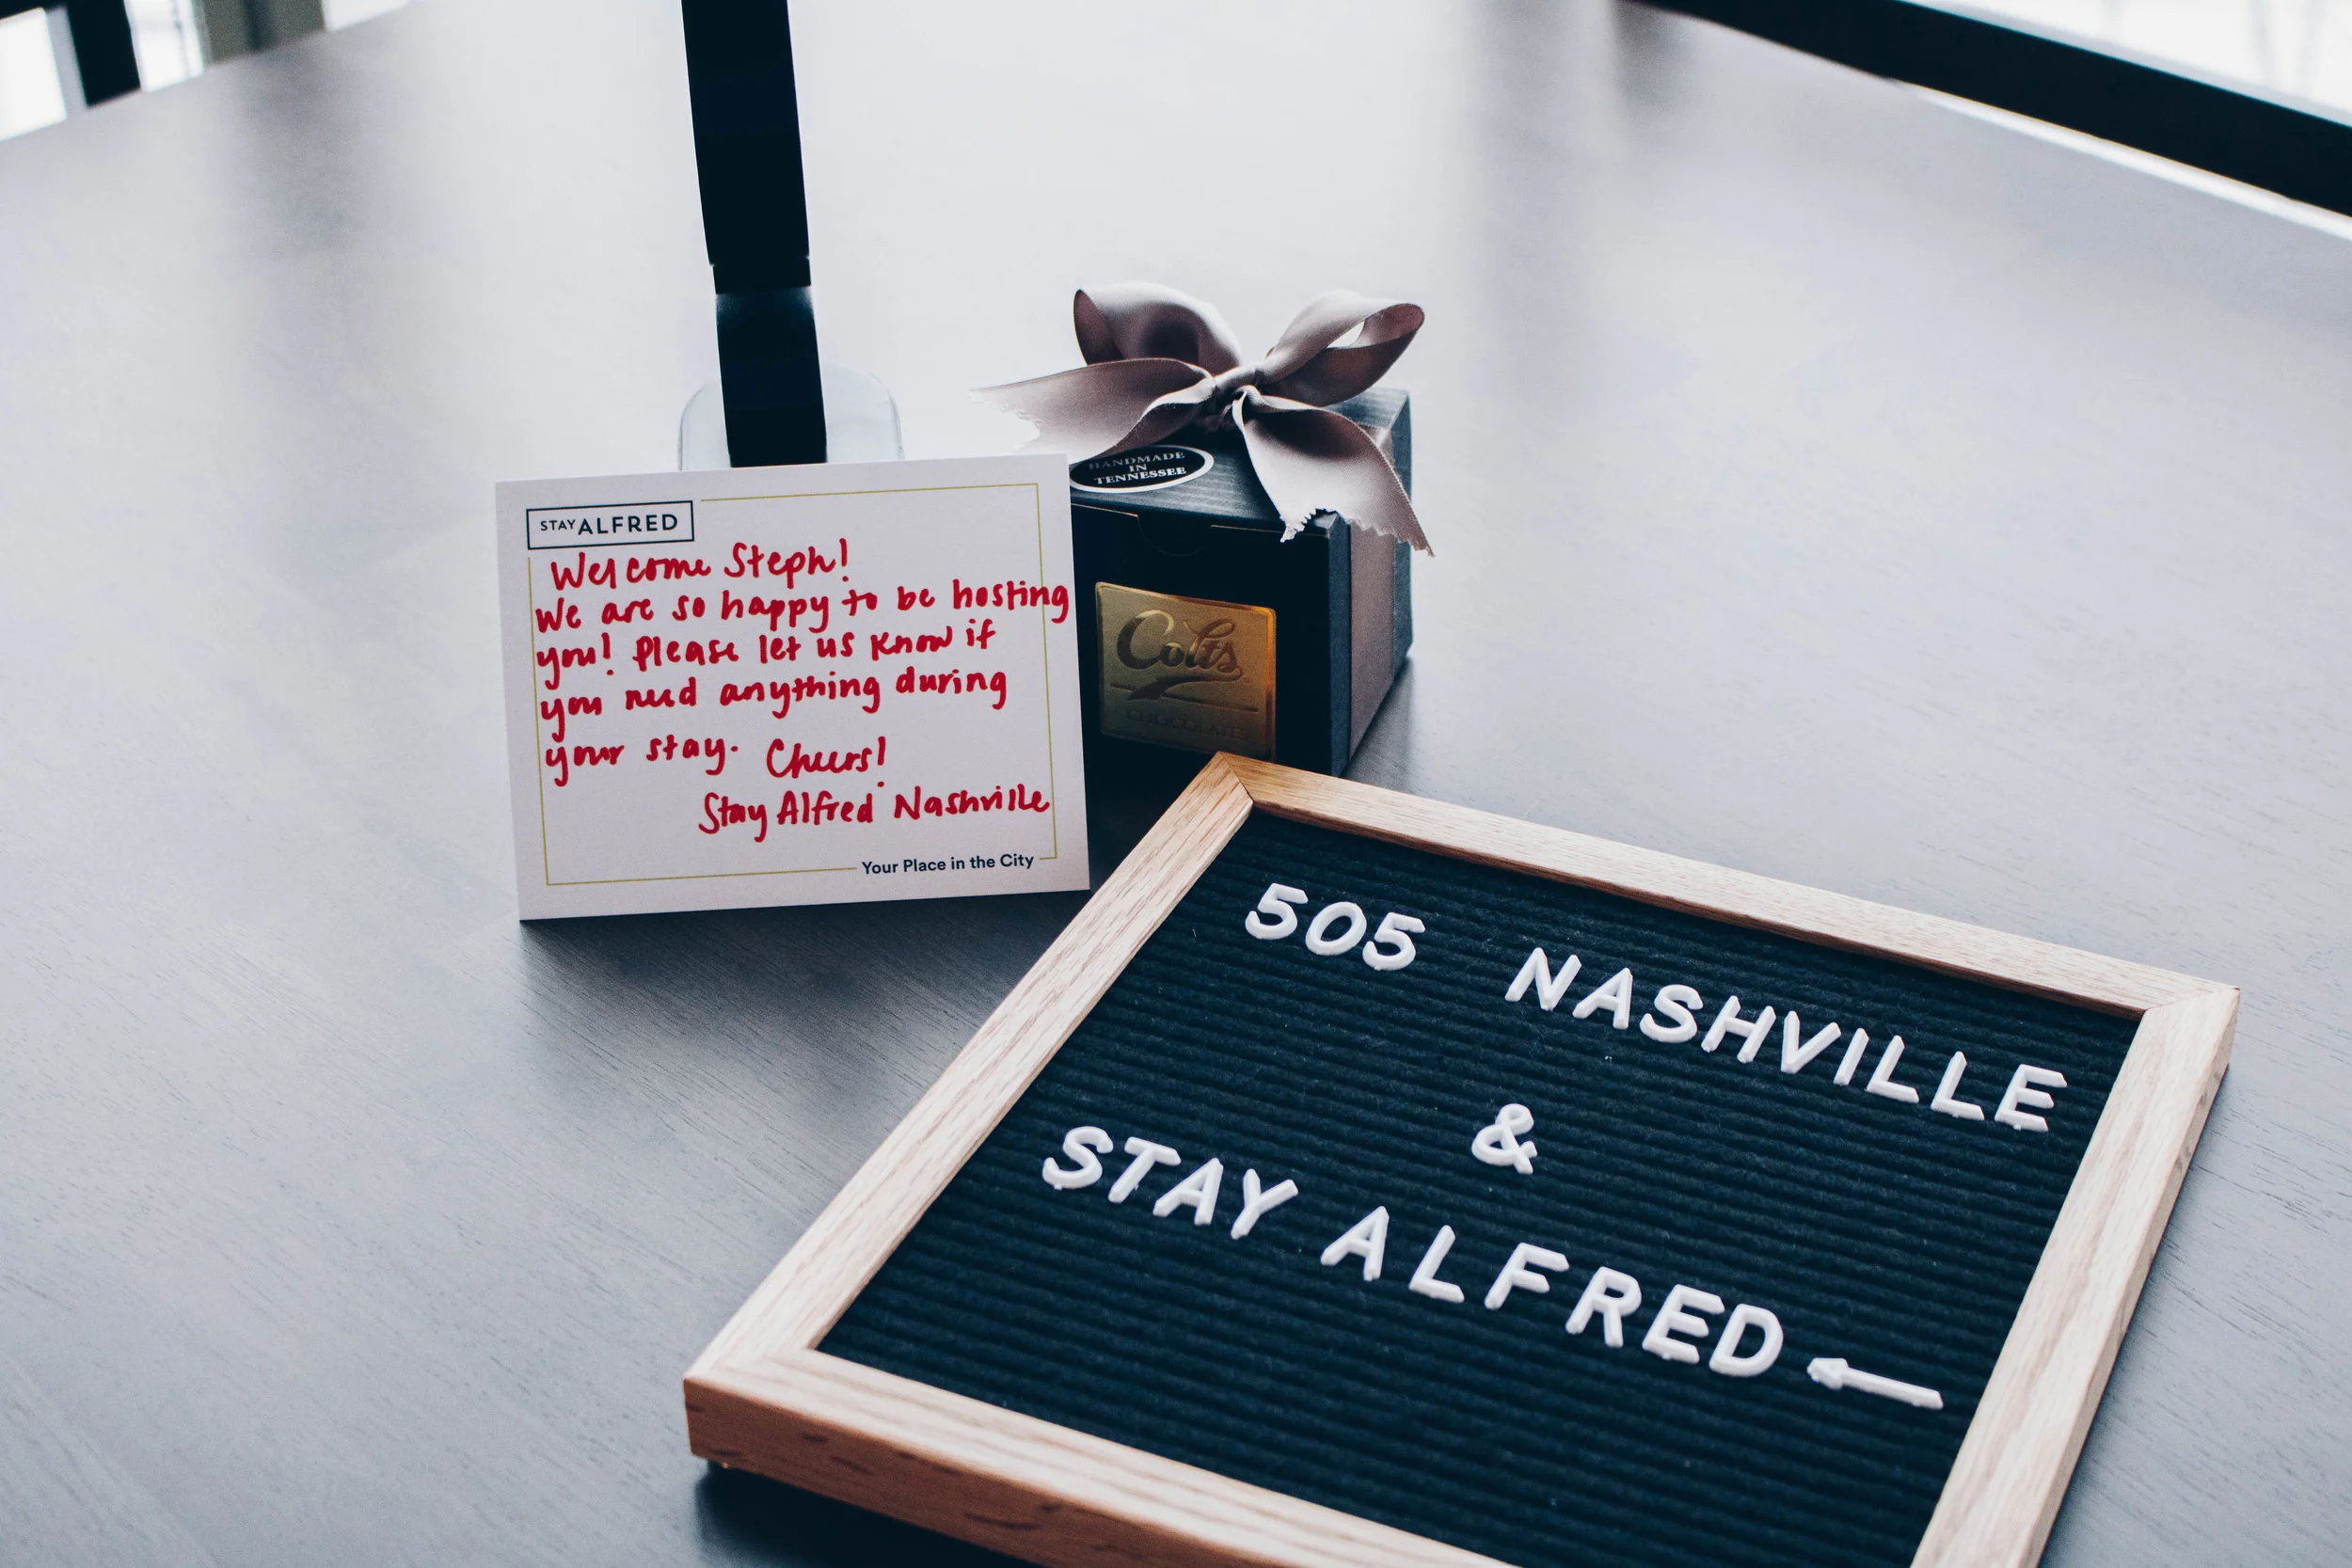 STAY ALFRED
Welcome Steph!
We are so happy to be hosting
you! Please let us know if
you need anything during
your stay. Cheers!
Stay Alfred Nashville
Your Place in the City
HANDMADE
IN
TENNESSEE
Colts
CHOCOLATES
505 NASHVILLE
&
STAY ALFRED ←